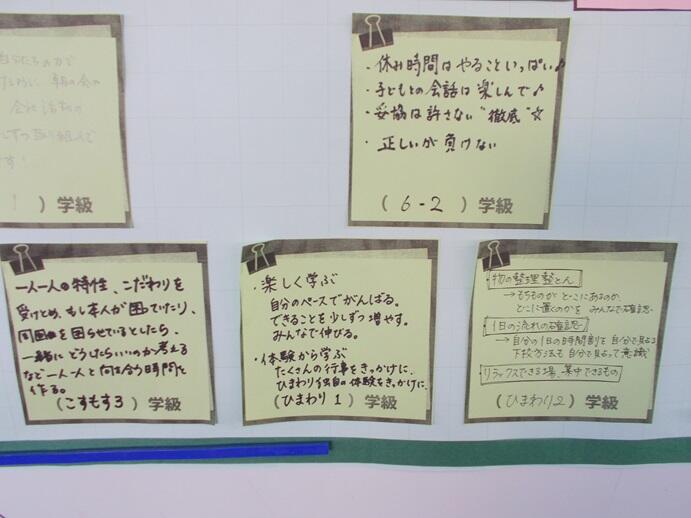 朝の会の
1 ) 学級
・休み時間はやることいっぱい♪
・子どもとの会話は楽しんで♪
・妥協は許さない"徹底"☆
・正しいが負けない
( 6-2 ) 学級
一人一人の特性、こだわりを
受けとめ、もし本人が困っていたり、
周囲を困らせているとしたら、
一緒にどうしたらいいのか考える
など一人一人と向き合う時間を
作る。
(こすもす3) 学級
・楽しく学ぶ
自分のペースでがんばる。
できることを少しずつ増やす。
みんなで伸びる。
・体験から学ぶ
たくさんの行事をきっかけに、
ひまわり独自の体験をきっかけに、
(ひまわり 1) 学級
・物の整理整とん
→もちものが どこにあるのか、
どこに置くのかを みんなで確認。
・1日の流れの確認
→自分の1日の時間割を自分で見る
下校方法も自分で見て意識
・リラックスできる場、集中できるもの
(ひまわり2) 学級